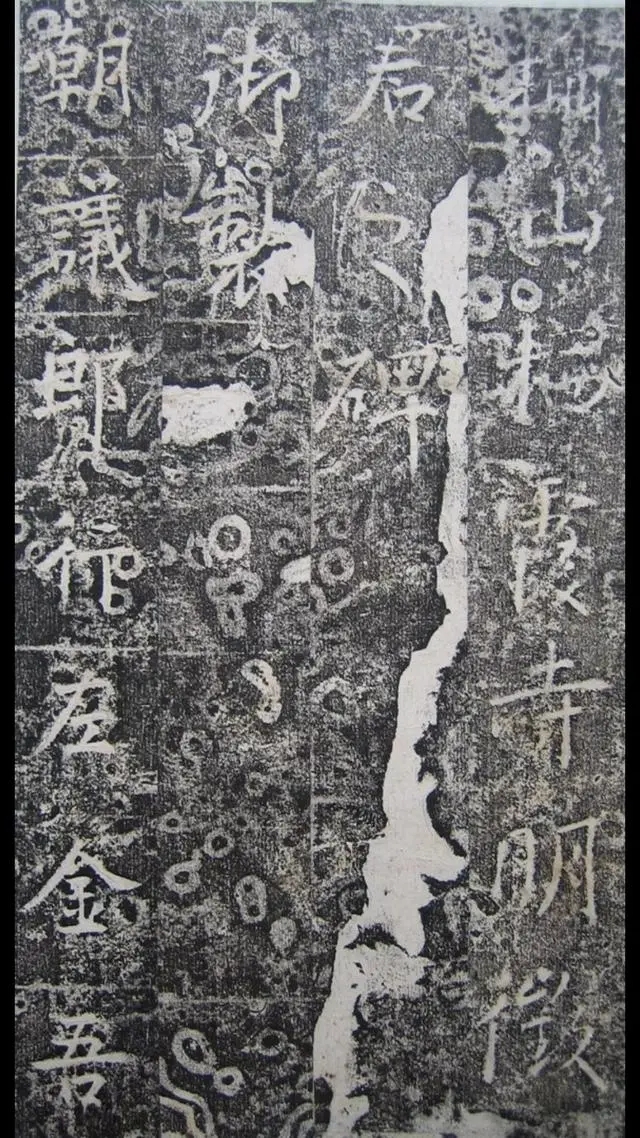 攝山棲霞寺明徵
君之碑
御製
朝議郎行左金吾